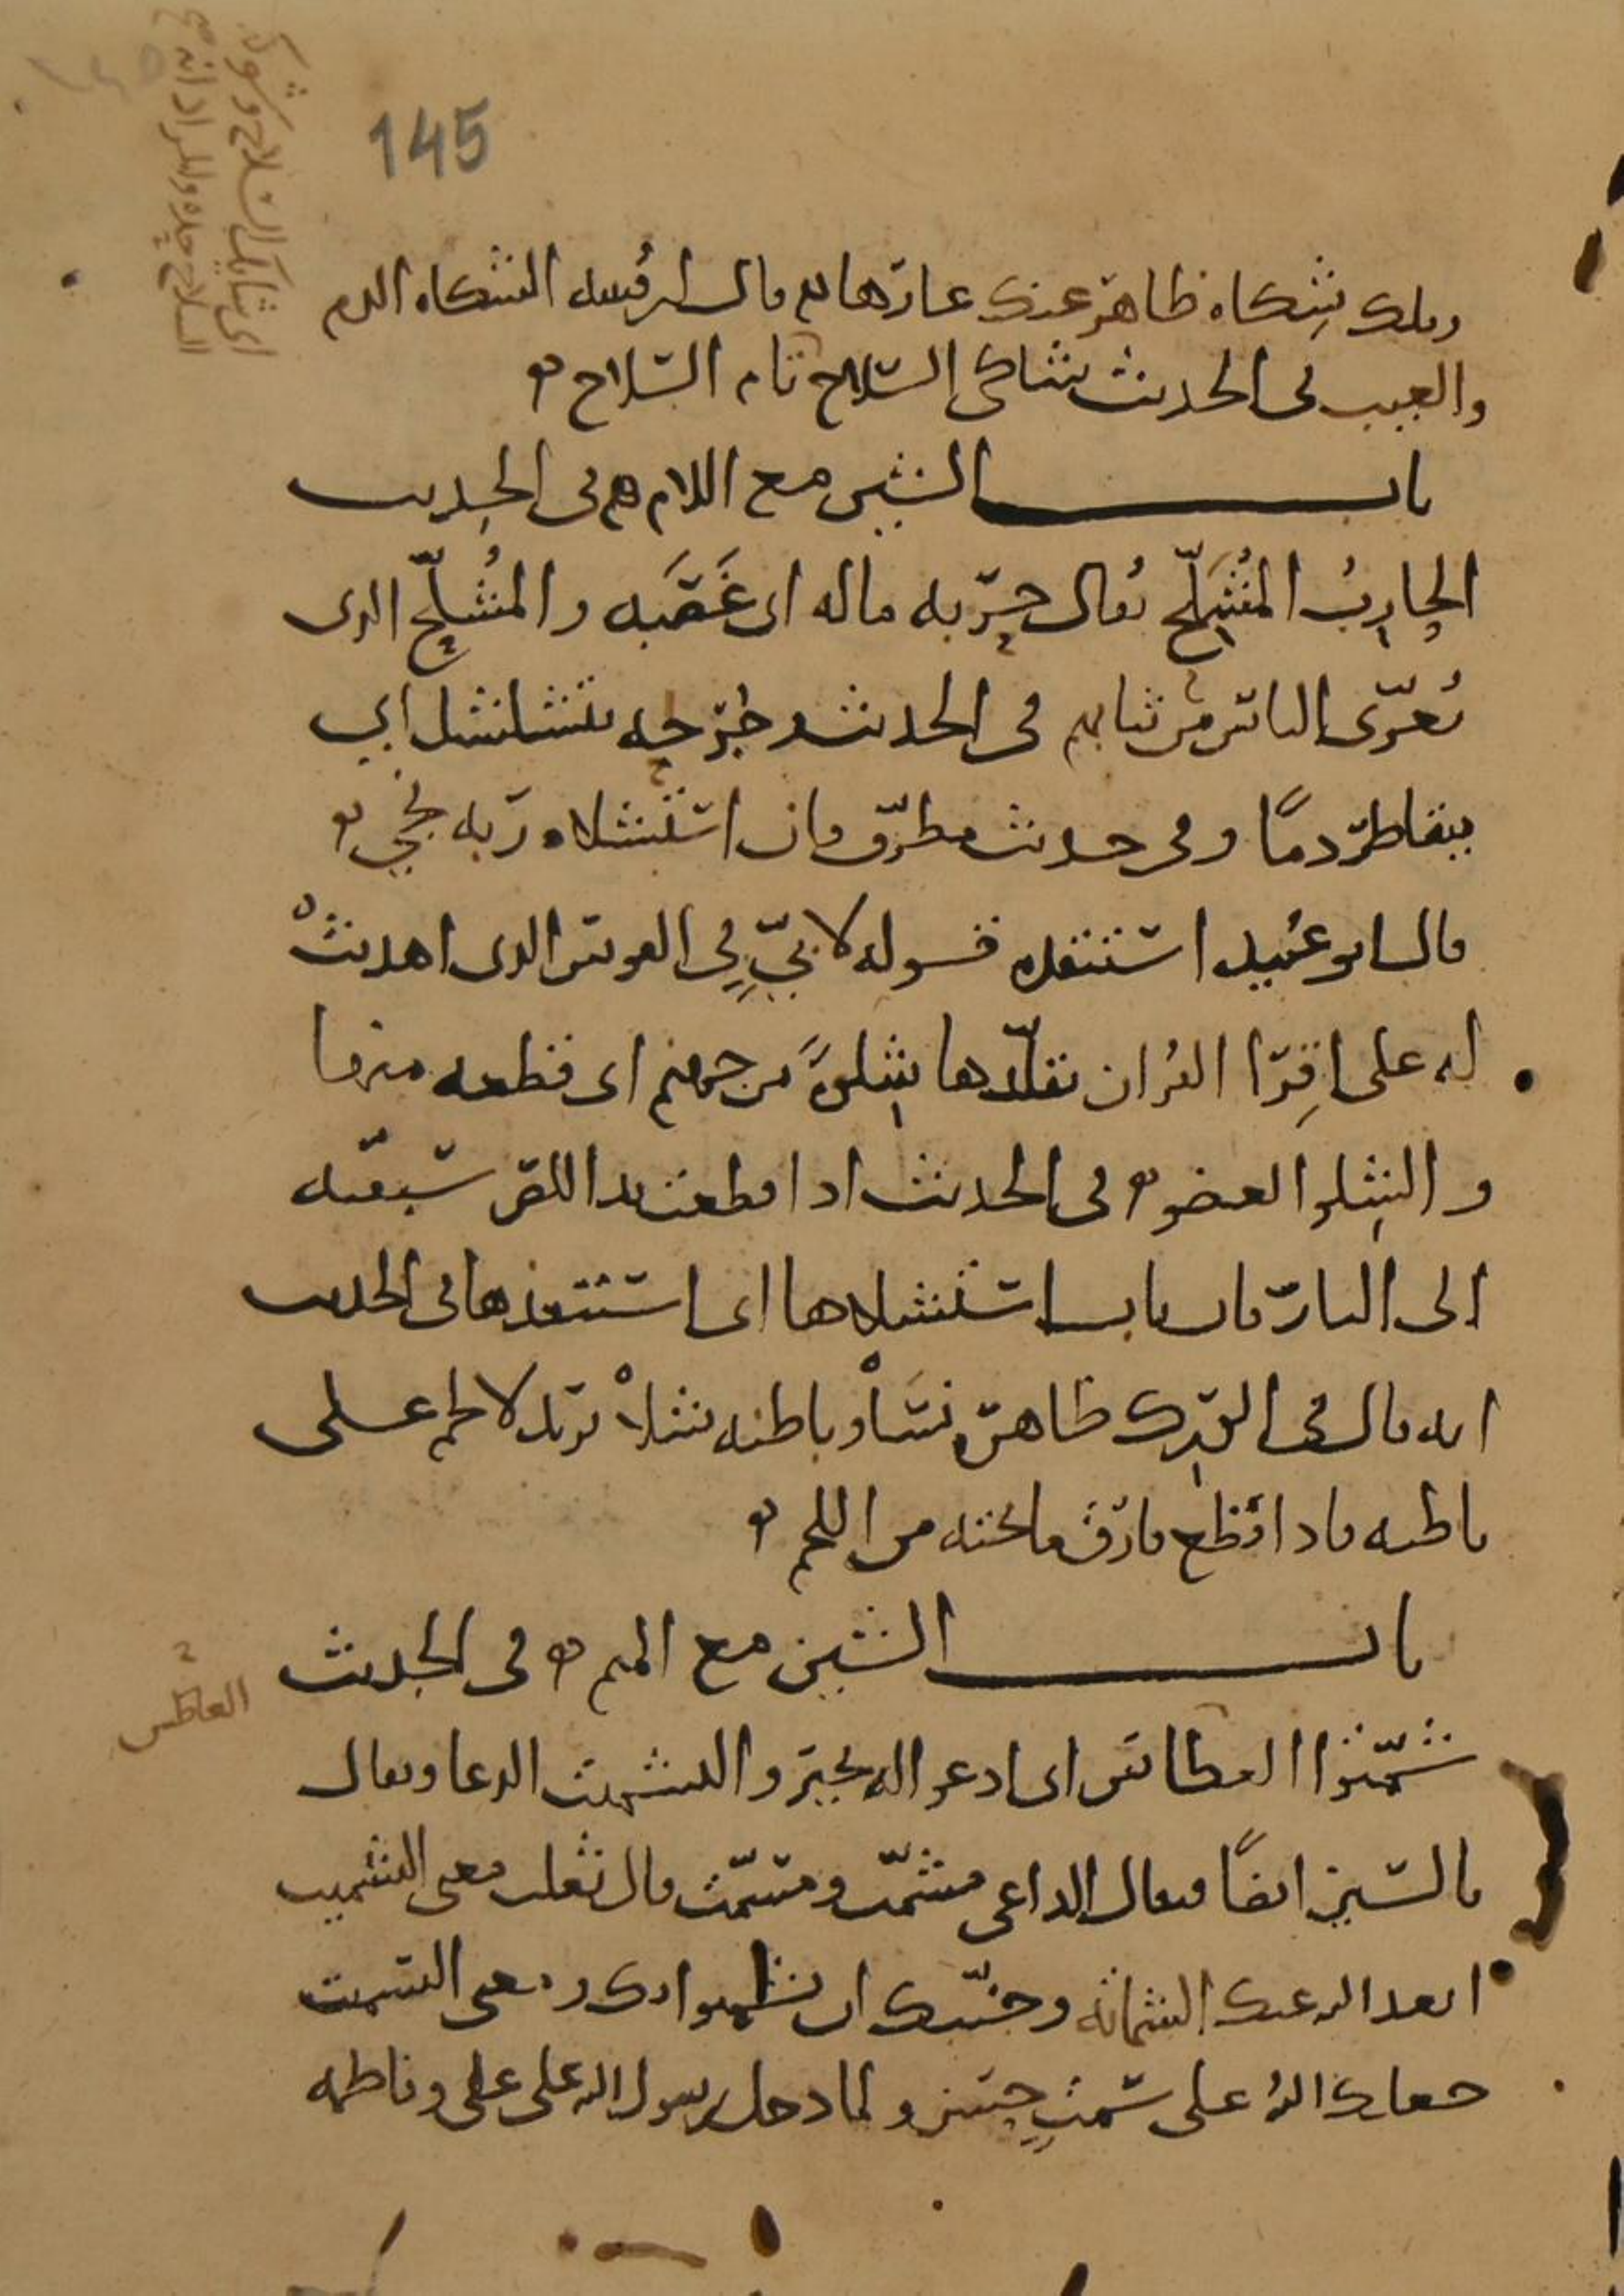 145
وتلك شكاة ظاهر عنك عارها قال ابن قتيبة الشكاة الذم
والعيب في الحديث شاكي السلاح تام السلاح
باب الشين مع اللام في الحديث
الحارب المُشَلِّح يُقال حرّبه ماله اي غَصَبَه والمُشلّح الذي
يُعرّي الناس من ثيابهم في الحديث وجرحه يتشلشل اي
يتقاطر دمًا وفي حديث مطرّف فان استشلاه ربه نجي
قال ابو عبيد استنقذه قوله لابيّ في القوس الذي اهديت
له على اقرا القران تقلّدها شِلوةً من جهنم اي قطعه منها
والشِلو العضو في الحديث اذا قطعت يد اللص سبقته
الى النار فان تاب استشلاها اي استنقذها في الحديث
انه قال في الورك ظاهره نسًا وباطنه شلا يريد لا لحم على
باطنه فاذا قطع فارق ما تحته من اللحم
باب الشين مع الميم في الحديث
شمّتوا العطاس اي ادعوا له بخير والتشميت الدعا ويقال
بالسين ايضًا فيقال الداعي مشمّت ومسمّت قال ثعلب معنى التشميت
ابعد الله عنك الشماتة وجنّبك ان يشمتوا بك ومعنى التسميت
جعلك الله على سمتٍ حسن ولما دخل رسول الله على علي وفاطمة
العاطس
اي شايك السلاح وشوك
السلاح